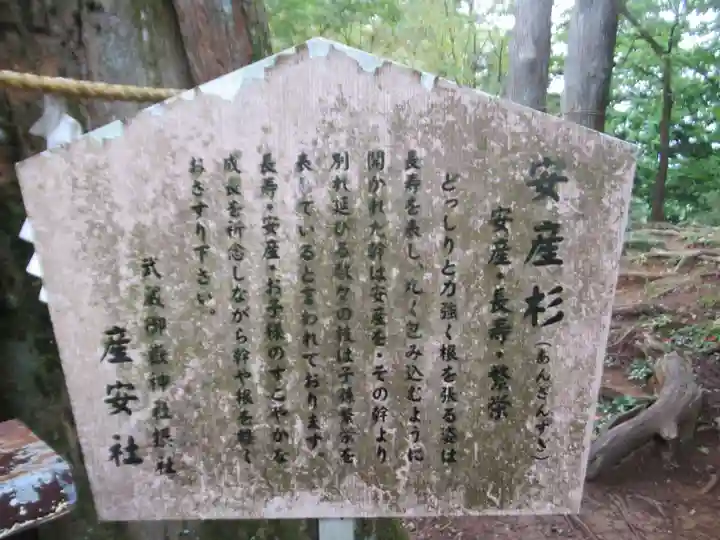 安産杉(あんざんすぎ)
安産・長寿・繁栄
どっしりと力強く根を張る姿は
長寿を表し、丸く包み込むように
開かれた幹は安産を・その幹より
別れ延びる数々の枝は子孫繁栄を
表していると言われております。
長寿・安産・お子様のすこやかな
成長を祈念しながら幹や根を軽く
おさすり下さい。
武蔵御嶽神社摂社
産安社